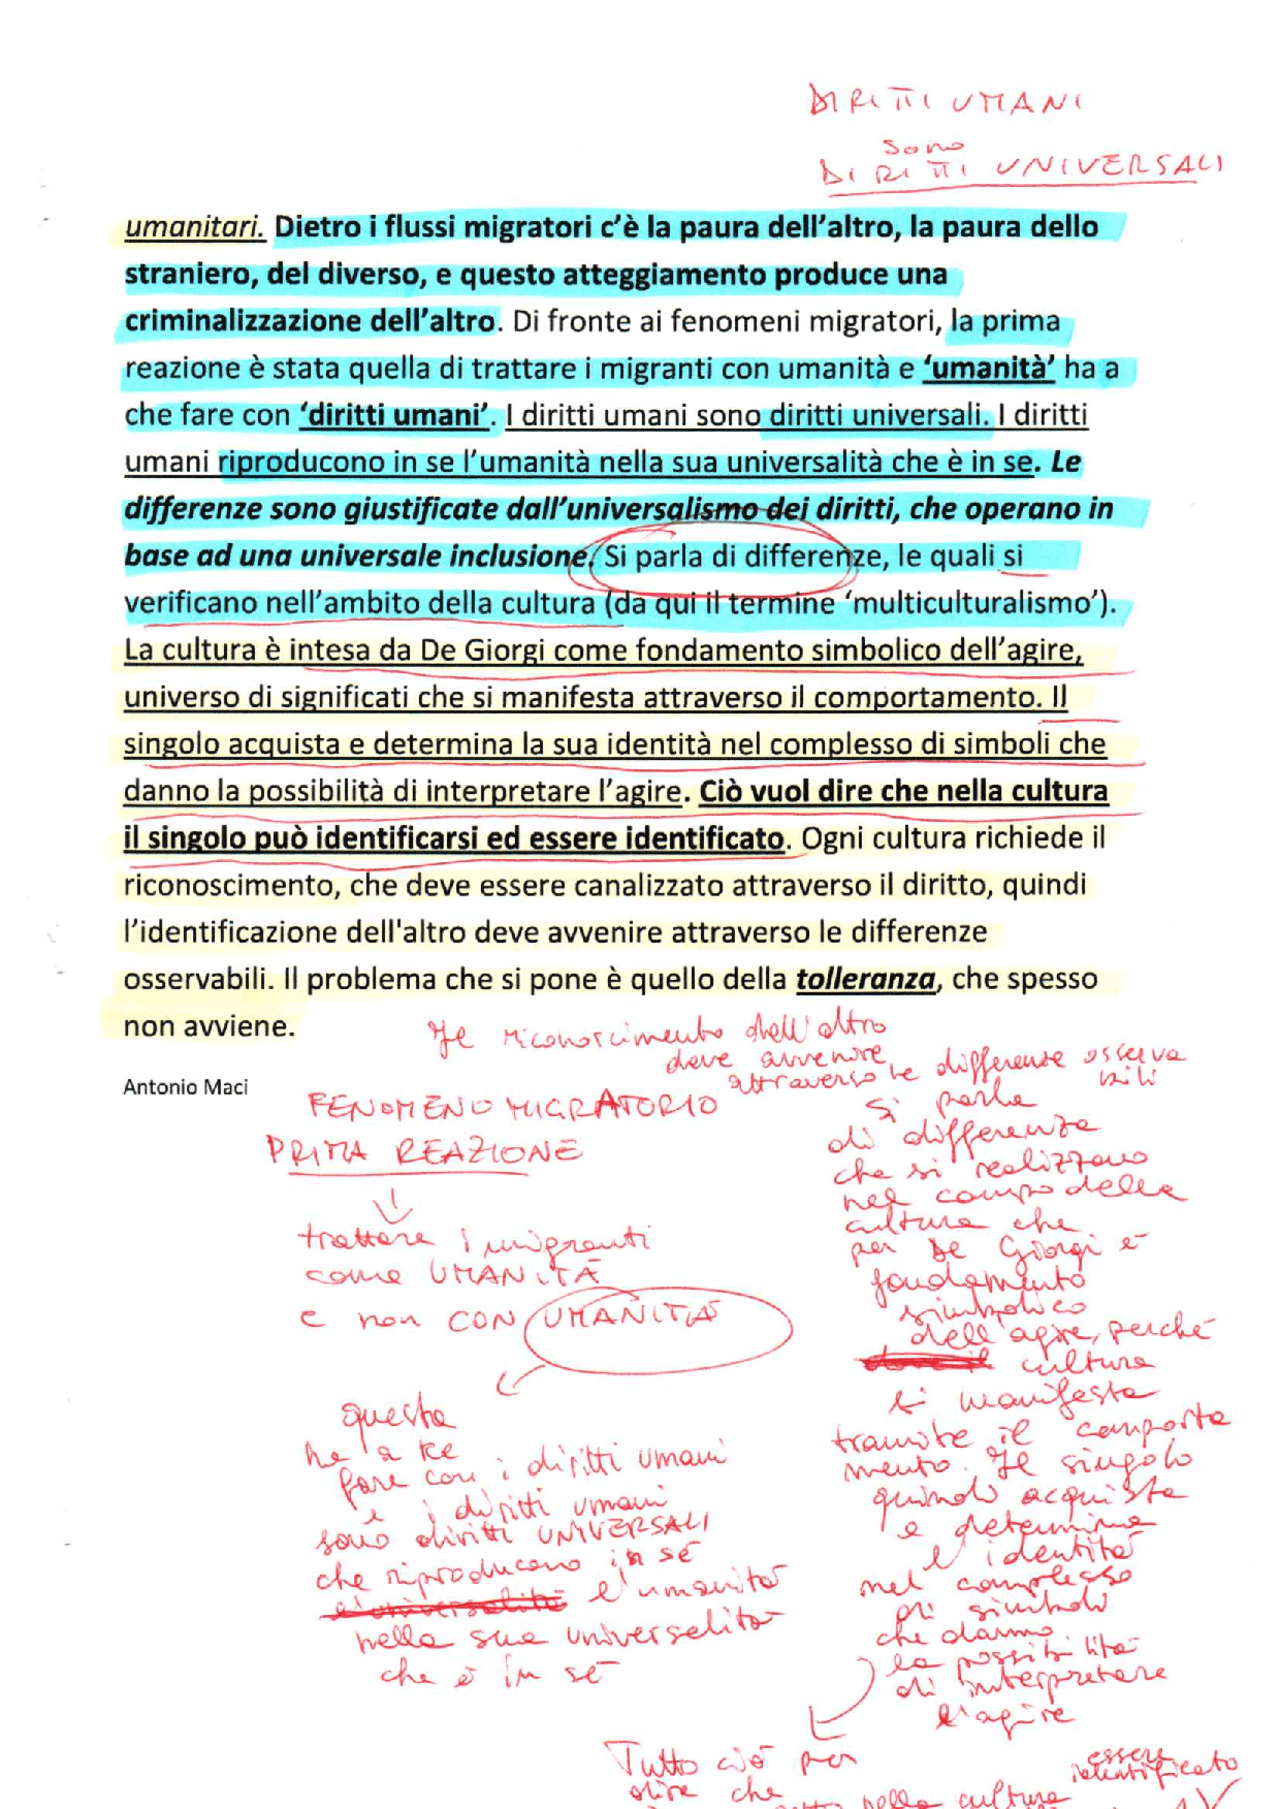 DIRITTI UMANI
sono
DIRITTI UNIVERSALI
umanitari. Dietro i flussi migratori c'è la paura dell'altro, la paura dello
straniero, del diverso, e questo atteggiamento produce una
criminalizzazione dell'altro. Di fronte ai fenomeni migratori, la prima
reazione è stata quella di trattare i migranti con umanità e 'umanità' ha a
che fare con 'diritti umani'. I diritti umani sono diritti universali. I diritti
umani riproducono in se l'umanità nella sua universalità che è in se. Le
differenze sono giustificate dall'universalismo dei diritti, che operano in
base ad una universale inclusione. Si parla di differenze, le quali si
verificano nell'ambito della cultura (da qui il termine 'multiculturalismo').
La cultura è intesa da De Giorgi come fondamento simbolico dell'agire,
universo di significati che si manifesta attraverso il comportamento. Il
singolo acquista e determina la sua identità nel complesso di simboli che
danno la possibilità di interpretare l'agire. Ciò vuol dire che nella cultura
il singolo può identificarsi ed essere identificato. Ogni cultura richiede il
riconoscimento, che deve essere canalizzato attraverso il diritto, quindi
l'identificazione dell'altro deve avvenire attraverso le differenze
osservabili. Il problema che si pone è quello della tolleranza, che spesso
non avviene.
Il riconoscimento dell'altro
deve avvenire
attraverso le differenze osserva
bili
Antonio Maci
FENOMENO MIGRATORIO
PRIMA REAZIONE
trattare i migranti
come UMANITÀ
e non CON UMANITÀ
questa
ha a ke
fare con i diritti umani
e i diritti umani
sono diritti UNIVERSALI
che riproducono in sé
l'umanità
nella sua universalità
che è in sé
Si parla
di differenze
che si realizzano
nel campo della
cultura che
per De Giorgi è
fondamento
simbolico
dell'agire, perché
cultura
si manifesta
tramite il comporta
mento. Il singolo
quindi acquista
e determina
l'identità
nel complesso
di simboli
che danno
la possibilità
di interpretare
l'agire
Tutto ciò per
dire che
nella cultura
essere
identificato